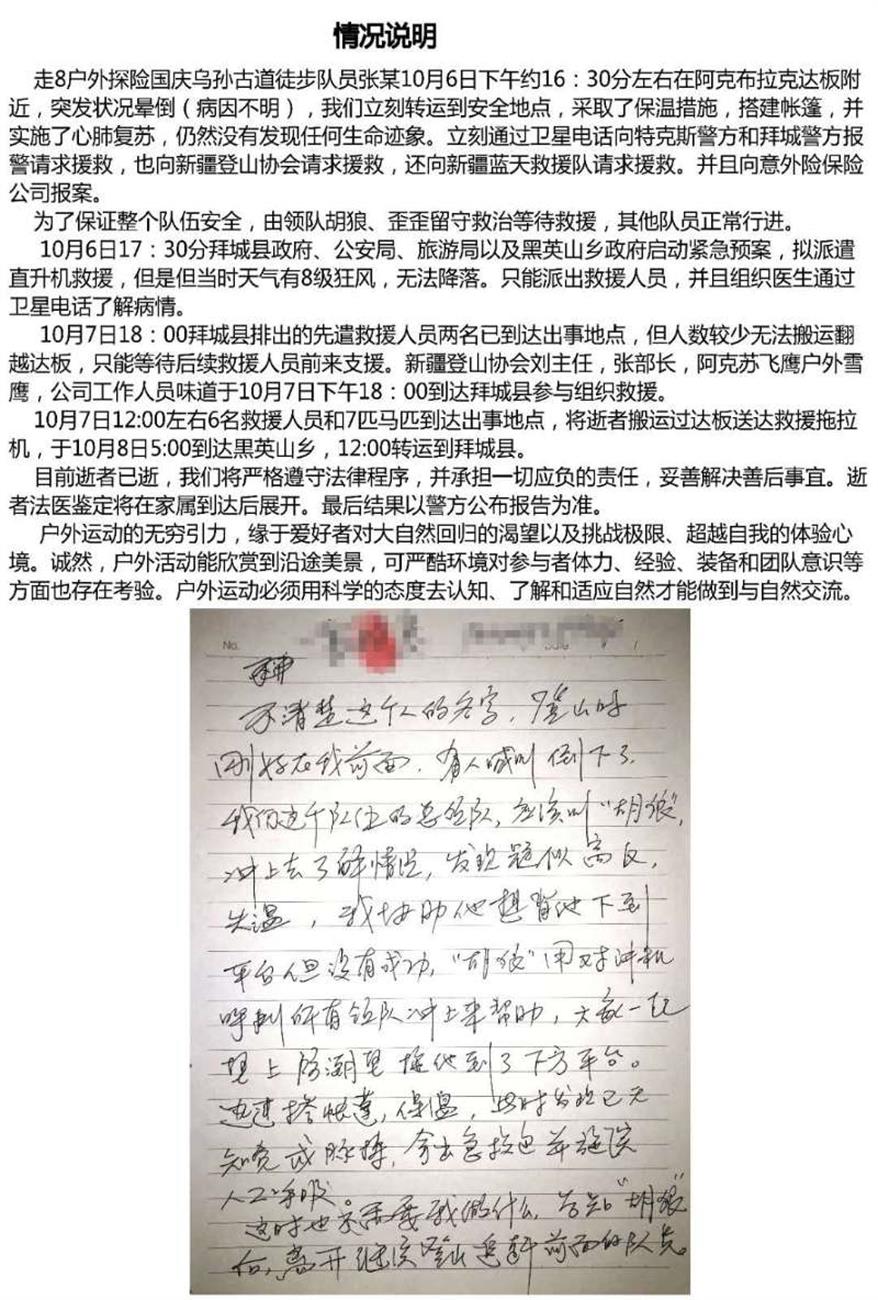 情况说明
走8户外探险国庆乌孙古道徒步队员张某10月6日下午约16：30分左右在阿克布拉克达板附
近，突发状况晕倒（病因不明），我们立刻转运到安全地点，采取了保温措施，搭建帐篷，并
实施了心肺复苏，仍然没有发现任何生命迹象。立刻通过卫星电话向特克斯警方和拜城警方报
警请求援救，也向新疆登山协会请求援救，还向新疆蓝天救援队请求援救。并且向意外险保险
公司报案。
为了保证整个队伍安全，由领队胡狼、歪歪留守救治等待救援，其他队员正常行进。
10月6日17：30分拜城县政府、公安局、旅游局以及黑英山乡政府启动紧急预案，拟派遣
直升机救援，但是但当时天气有8级狂风，无法降落。只能派出救援人员，并且组织医生通过
卫星电话了解病情。
10月7日18：00拜城县排出的先遣救援人员两名已到达出事地点，但人数较少无法搬运翻
越达板，只能等待后续救援人员前来支援。新疆登山协会刘主任，张部长，阿克苏飞鹰户外雪
鹰，公司工作人员味道于10月7日下午18：00到达拜城县参与组织救援。
10月7日12:00左右6名救援人员和7匹马匹到达出事地点，将逝者搬运过达板送达救援拖拉
机，于10月8日5:00到达黑英山乡，12:00转运到拜城县。
目前逝者已逝，我们将严格遵守法律程序，并承担一切应负的责任，妥善解决善后事宜。逝
者法医鉴定将在家属到达后展开。最后结果以警方公布报告为准。
户外运动的无穷引力，缘于爱好者对大自然回归的渴望以及挑战极限、超越自我的体验心
境。诚然，户外活动能欣赏到沿途美景，可严酷环境对参与者体力、经验、装备和团队意识等
方面也存在考验。户外运动必须用科学的态度去认知、了解和适应自然才能做到与自然交流。
No.
不清楚这个人的名字，登山时
刚好在我前面，有人喊叫倒下了，
我们这个队伍的总领队，应该叫“胡狼”，
冲上去了解情况，发现疑似高反，
失温，我协助他想背他下到
平台但没有成功，“胡狼”用对讲机
呼叫所有领队冲上来帮助，大家一起
垫上防潮垫抬他到了下方平台。
迅速搭帐篷，保温，此时发现已无
知觉或脉搏，拿出急救包并施行
人工呼吸。
这时也不需要我做什么，告知“胡狼”
后，离开继续登山追赶前面的队员。